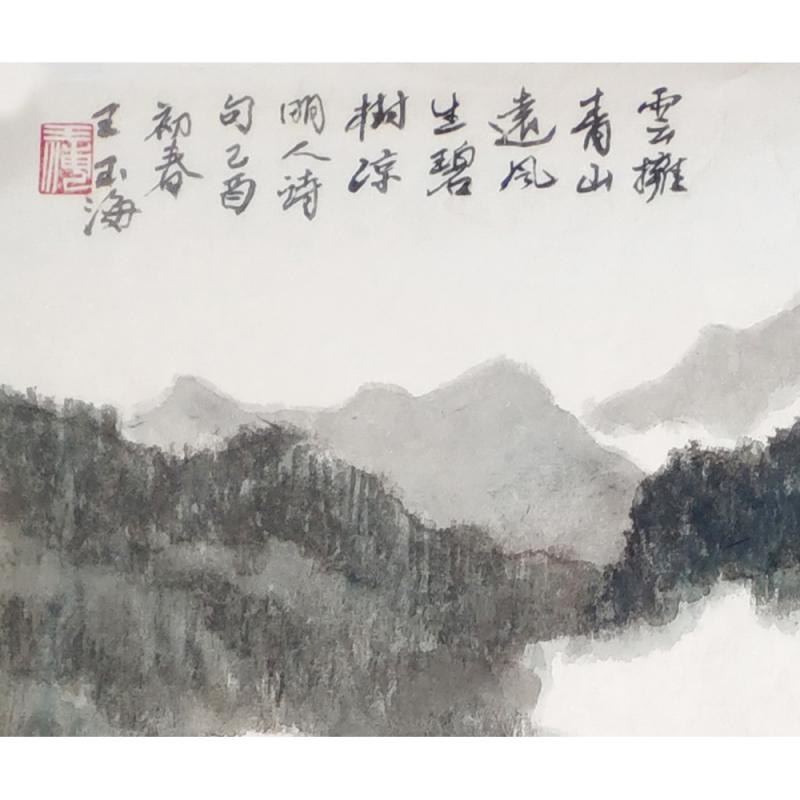 雲擁
青山
遠風
生碧
樹涼
明人詩
句乙酉
初春
王玉海